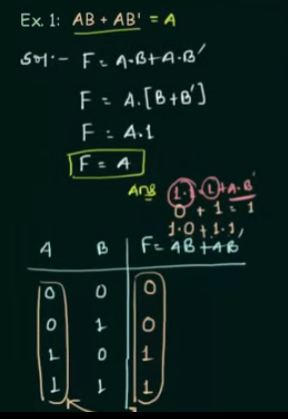 Ex. 1: AB + AB' = A
Sol:- F = A·B+A·B'
F = A.[B+B']
F = A.1
F = A
Ans
1.1.1+A.B'
0 + 1 = 1
1.0+1.1,
A B F = AB+AB'
0 0 0
0 1 0
1 0 1
1 1 1